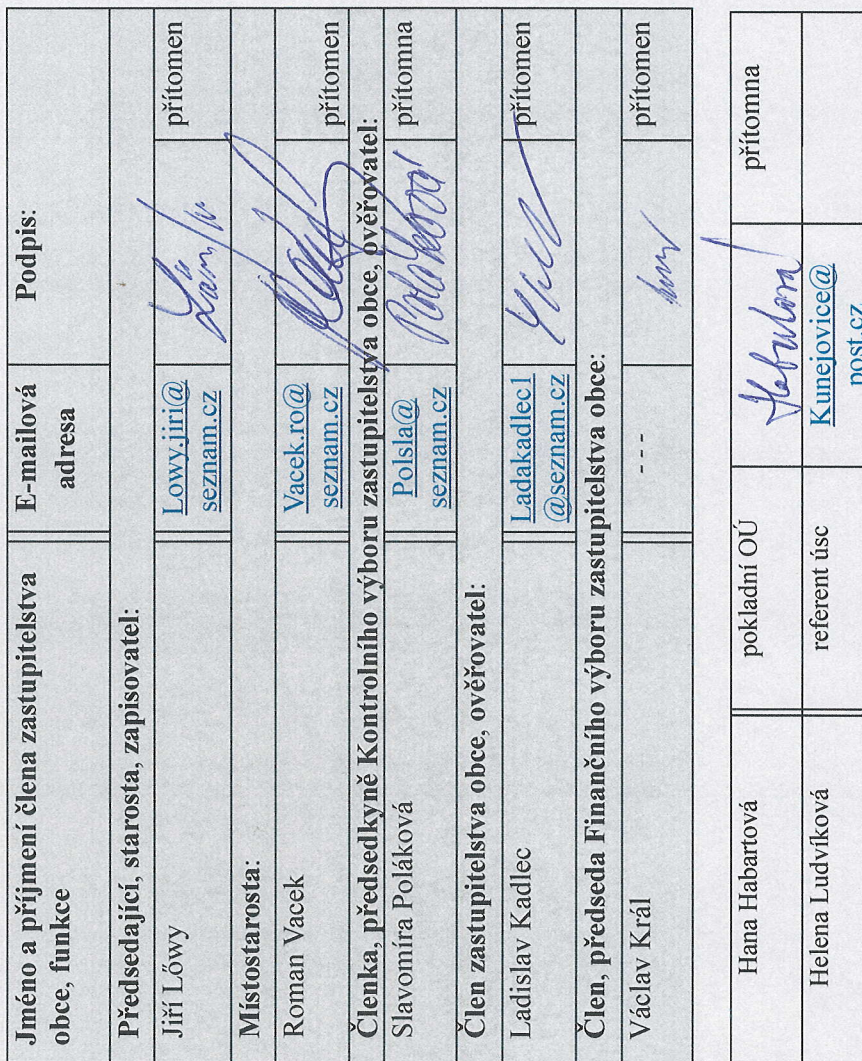 Jméno a příjmení člena zastupitelstva
obce, funkce
E-mailová
adresa
Podpis:
Předsedající, starosta, zapisovatel:
Jiří Lőwy
Lowy.jiri@
seznam.cz
přítomen
Místostarosta:
Roman Vacek
Vacek.ro@
seznam.cz
přítomen
Členka, předsedkyně Kontrolního výboru zastupitelstva obce, ověřovatel:
Slavomíra Poláková
Polsla@
seznam.cz
Poláková
přítomna
Člen zastupitelstva obce, ověřovatel:
Ladislav Kadlec
Ladakadlec1
@seznam.cz
přítomen
Člen, předseda Finančního výboru zastupitelstva obce:
Václav Král
- - -
přítomen
Hana Habartová
pokladní OÚ
Habartová
přítomna
Helena Ludvíková
referent úsc
Kunejovice@
post.cz